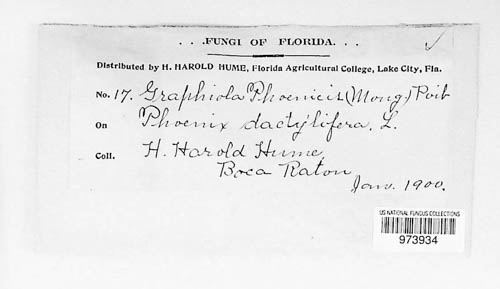 . . .FUNGI OF FLORIDA. . .
Distributed by H. HAROLD HUME, Florida Agricultural College, Lake City, Fla.
No. 17. Graphiola Phoenicis (Moug) Poit
On Phoenix dactylifera. L.
Coll. H. Harold Hume
Boca Raton
Jan. 1900.
US NATIONAL FUNGUS COLLECTIONS
973934